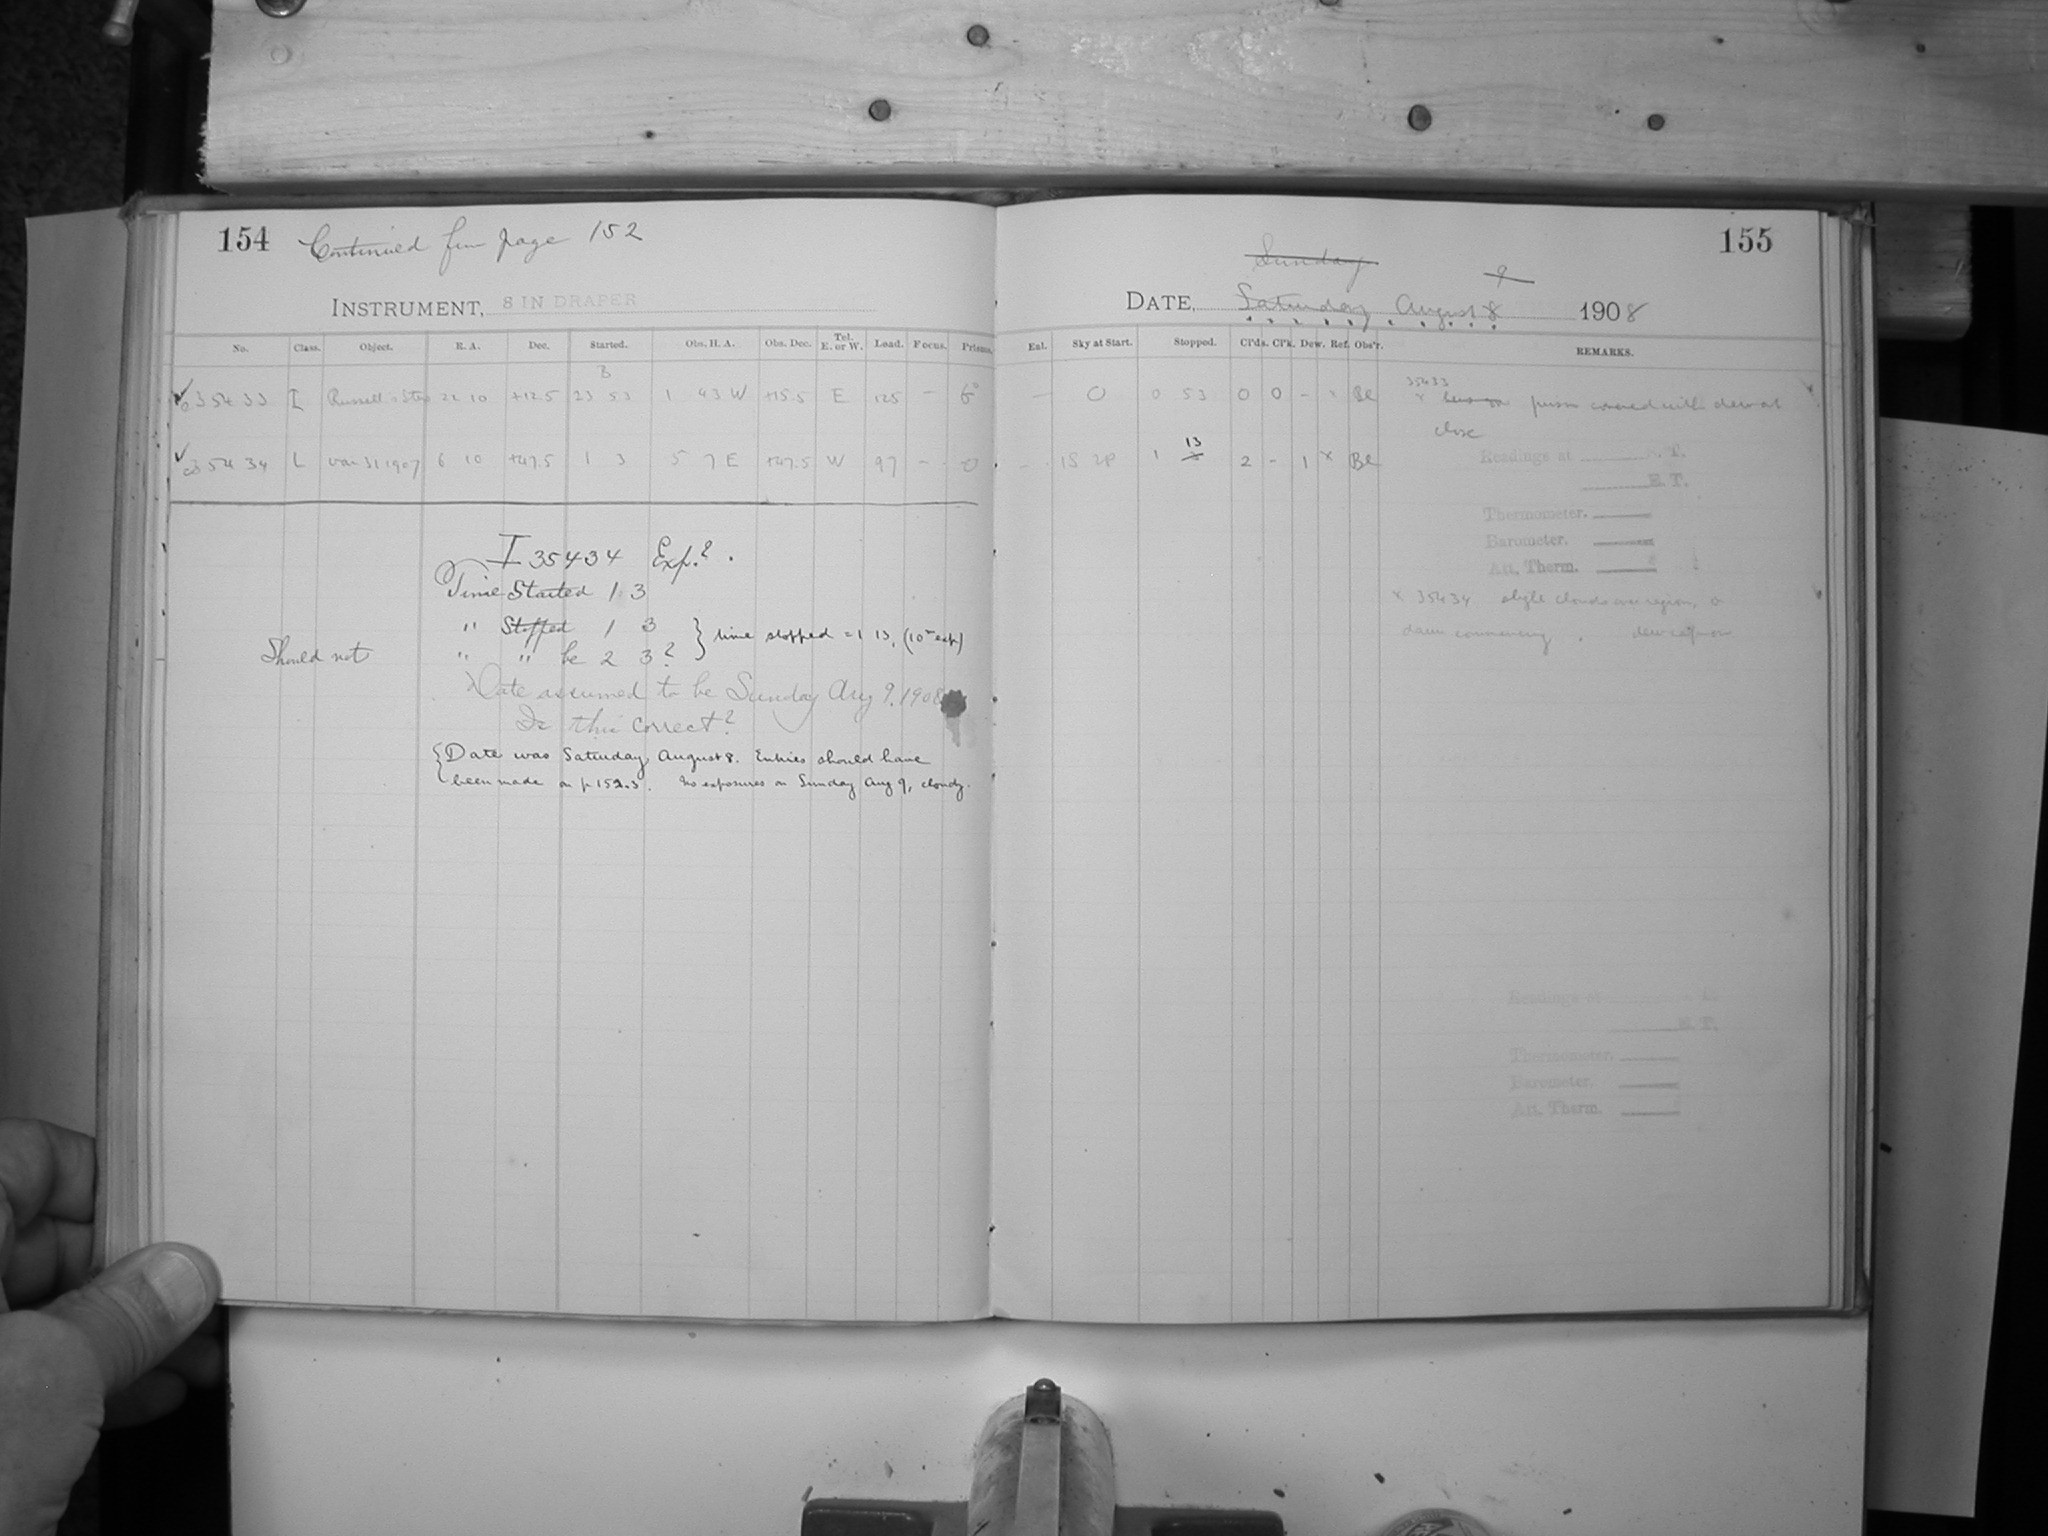 154 Continued from page 152
INSTRUMENT, 8 IN DRAPER
No. Class. Object. R. A. Dec. Started. Obs. H. A. Obs. Dec. Tel. E. or W. Load. Focus. Prisms.
35433 I Russell's 22 10 +12.5 23 53 1 43 W +15.5 E 125 – 6°
35434 L Var 31 1907 6 10 +47.5 1 3 5 7 E +47.5 W 97 – 0
I 35434 Exp.?
Time Started 1 3
" Stopped 1 3
Should not " " be 2 3?
} time stopped = 1 13, (10m exp)
Date assumed to be Sunday Aug 9, 1908
Is this correct?
{Date was Saturday August 8. Entries should have
been made on p 152-3. No exposures on Sunday Aug 9, cloudy.
155
Sunday 9
DATE, Saturday August 8 1908
Eat. Sky at Start. Stopped. Cl'ds. Cl'k. Dew. Ref. Obs'r. REMARKS.
– 0 0 53 0 0 – x Be
35433
x prism covered with dew at
close
– 1S 2P 1 13 2 – 1 x Be
Readings at T.
E. T.
Thermometer.
Barometer.
Att. Therm.
x 35434 slight clouds over region, &
dawn commencing. dew
Readings at T.
E. T.
Thermometer.
Barometer.
Att. Therm.